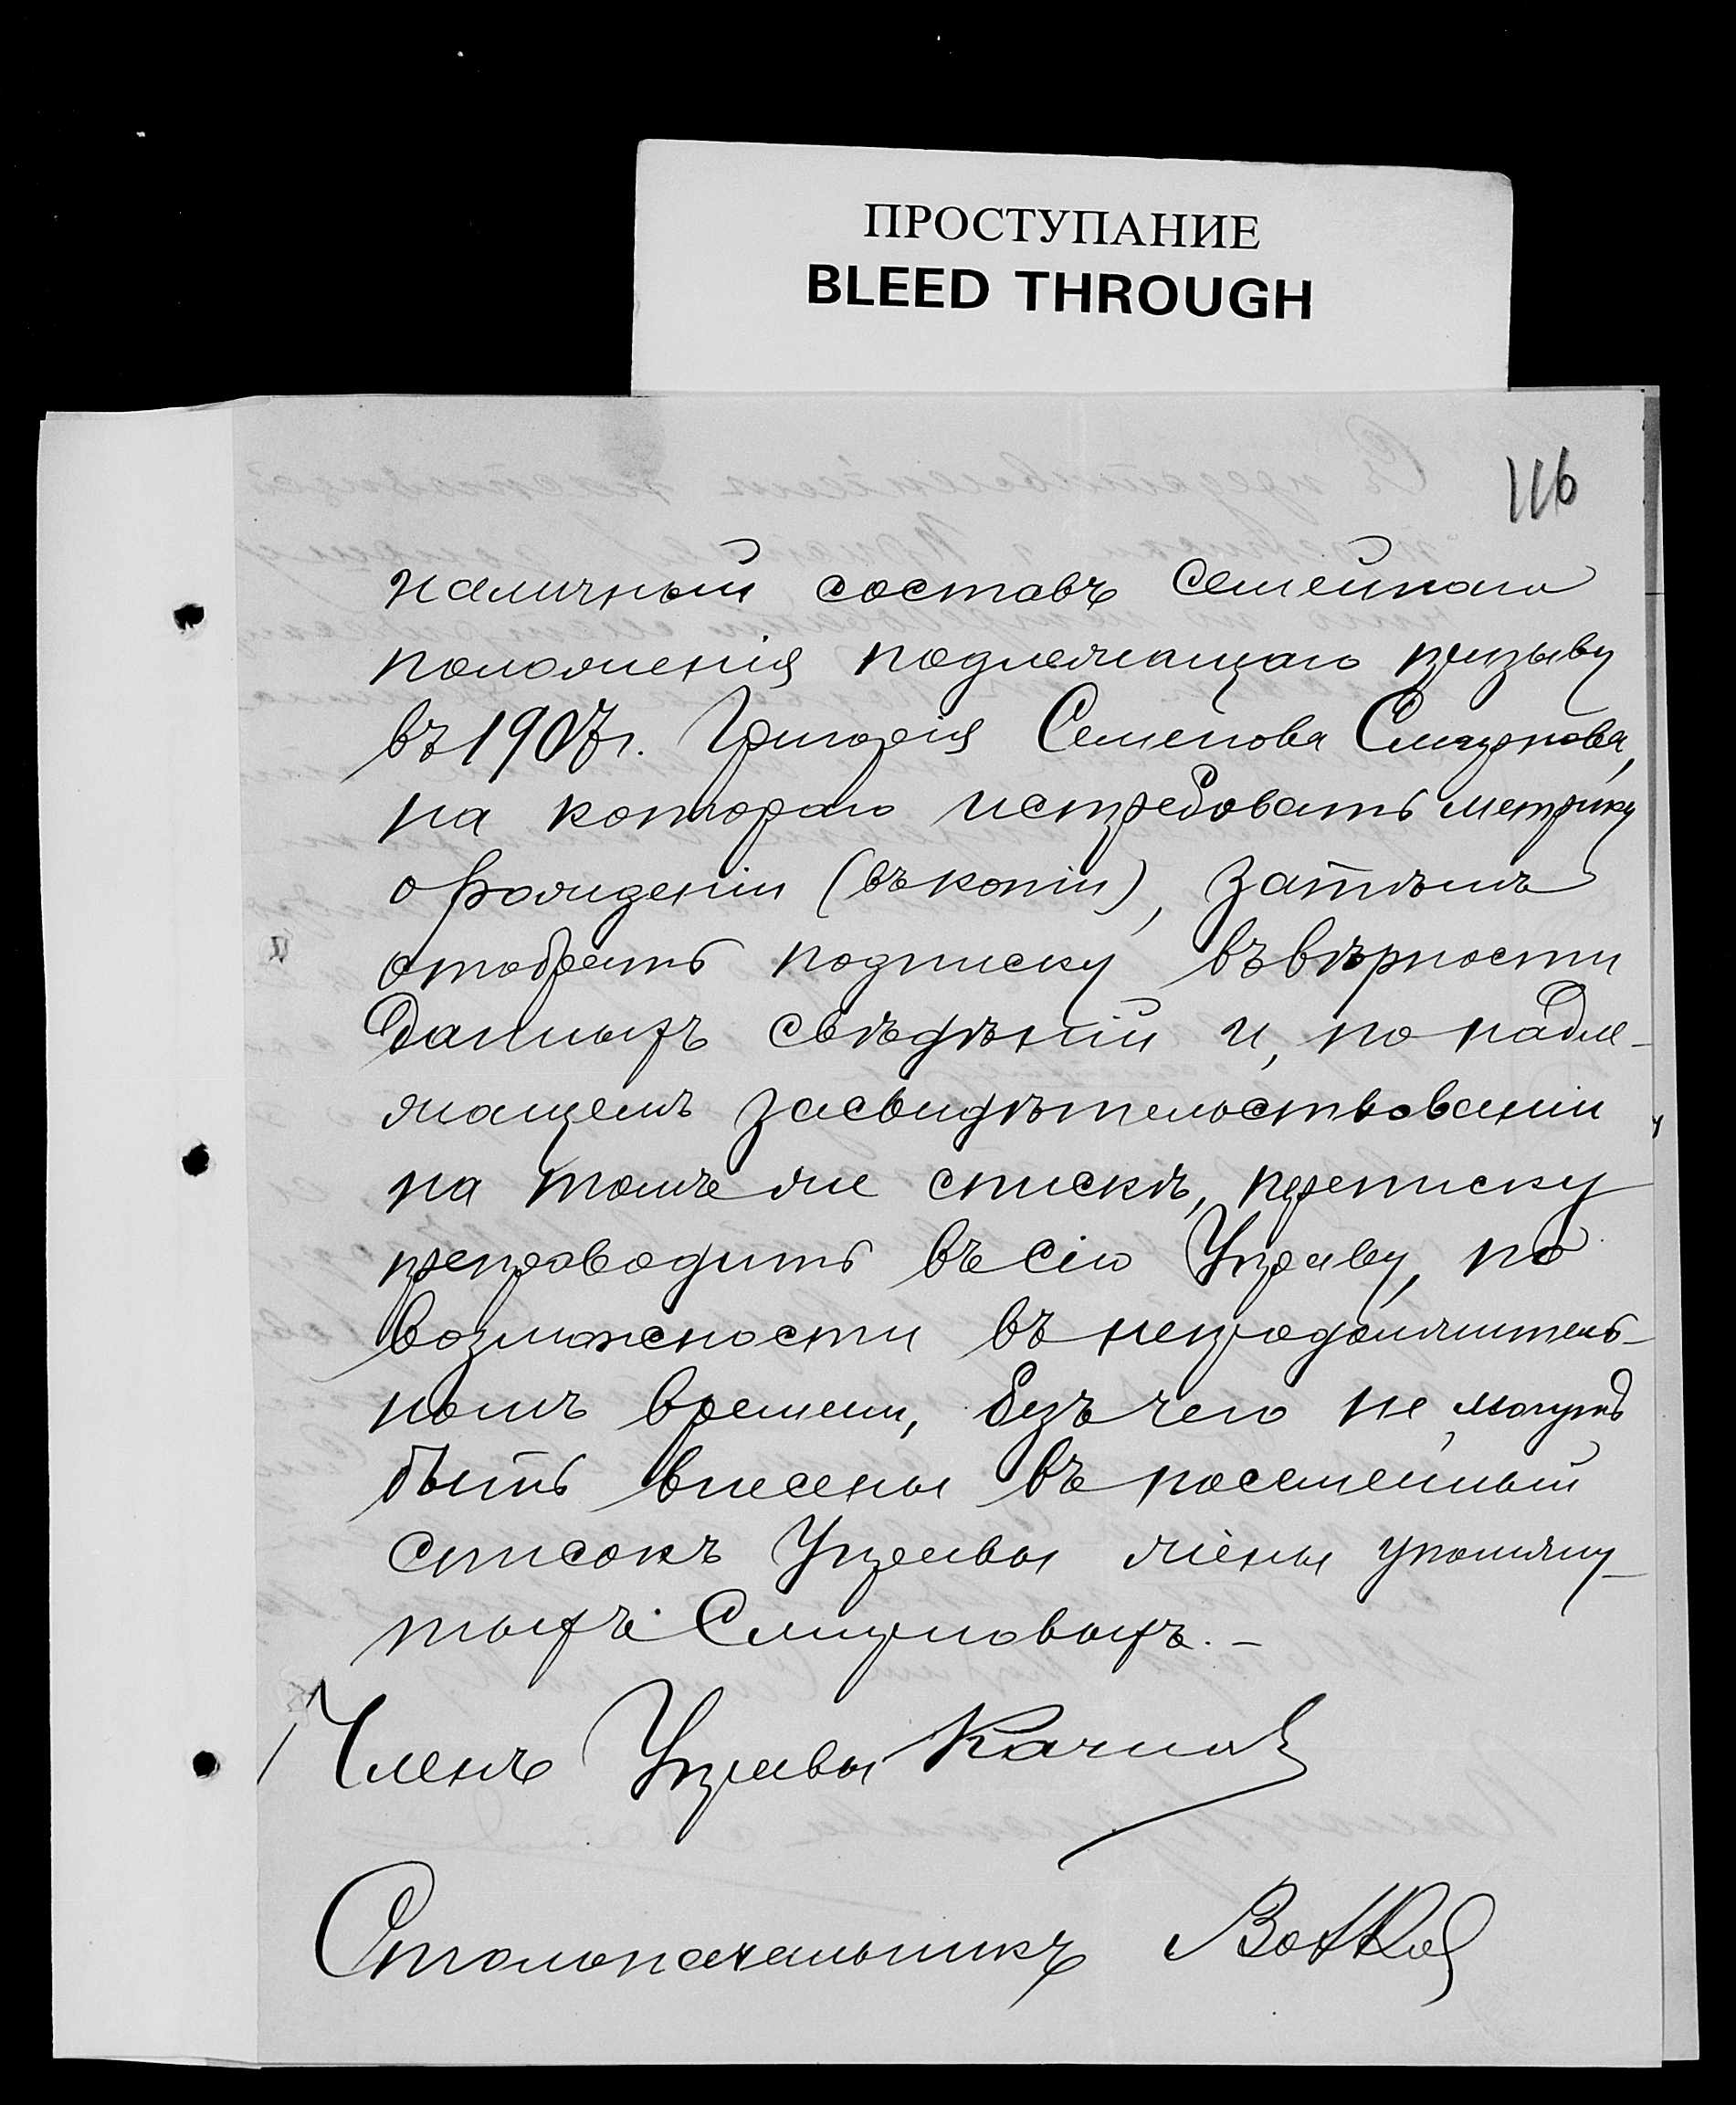 ПРОСТУПАНИЕ
BLEED THROUGH
116
наличный составъ семейнаго
положенія подлежащаго призыву
въ 1907 г. Григорія Семенова Смирнова,
на котораго истребовать метрику
о рожденіи (въ копіи), затѣмъ
отобрать подписку въ вѣрности
данныхъ свѣдѣній и, по надле-
жащемъ засвидѣтельствованіи
на томъ же спискѣ, переписку
препроводить въ сію Управу, по
возможности въ непродолжитель-
номъ времени, безъ чего не могутъ
быть внесены въ посемейный
списокъ Управы жены упомяну-
тыхъ Смирновыхъ. –
Членъ Управы
Столоначальникъ